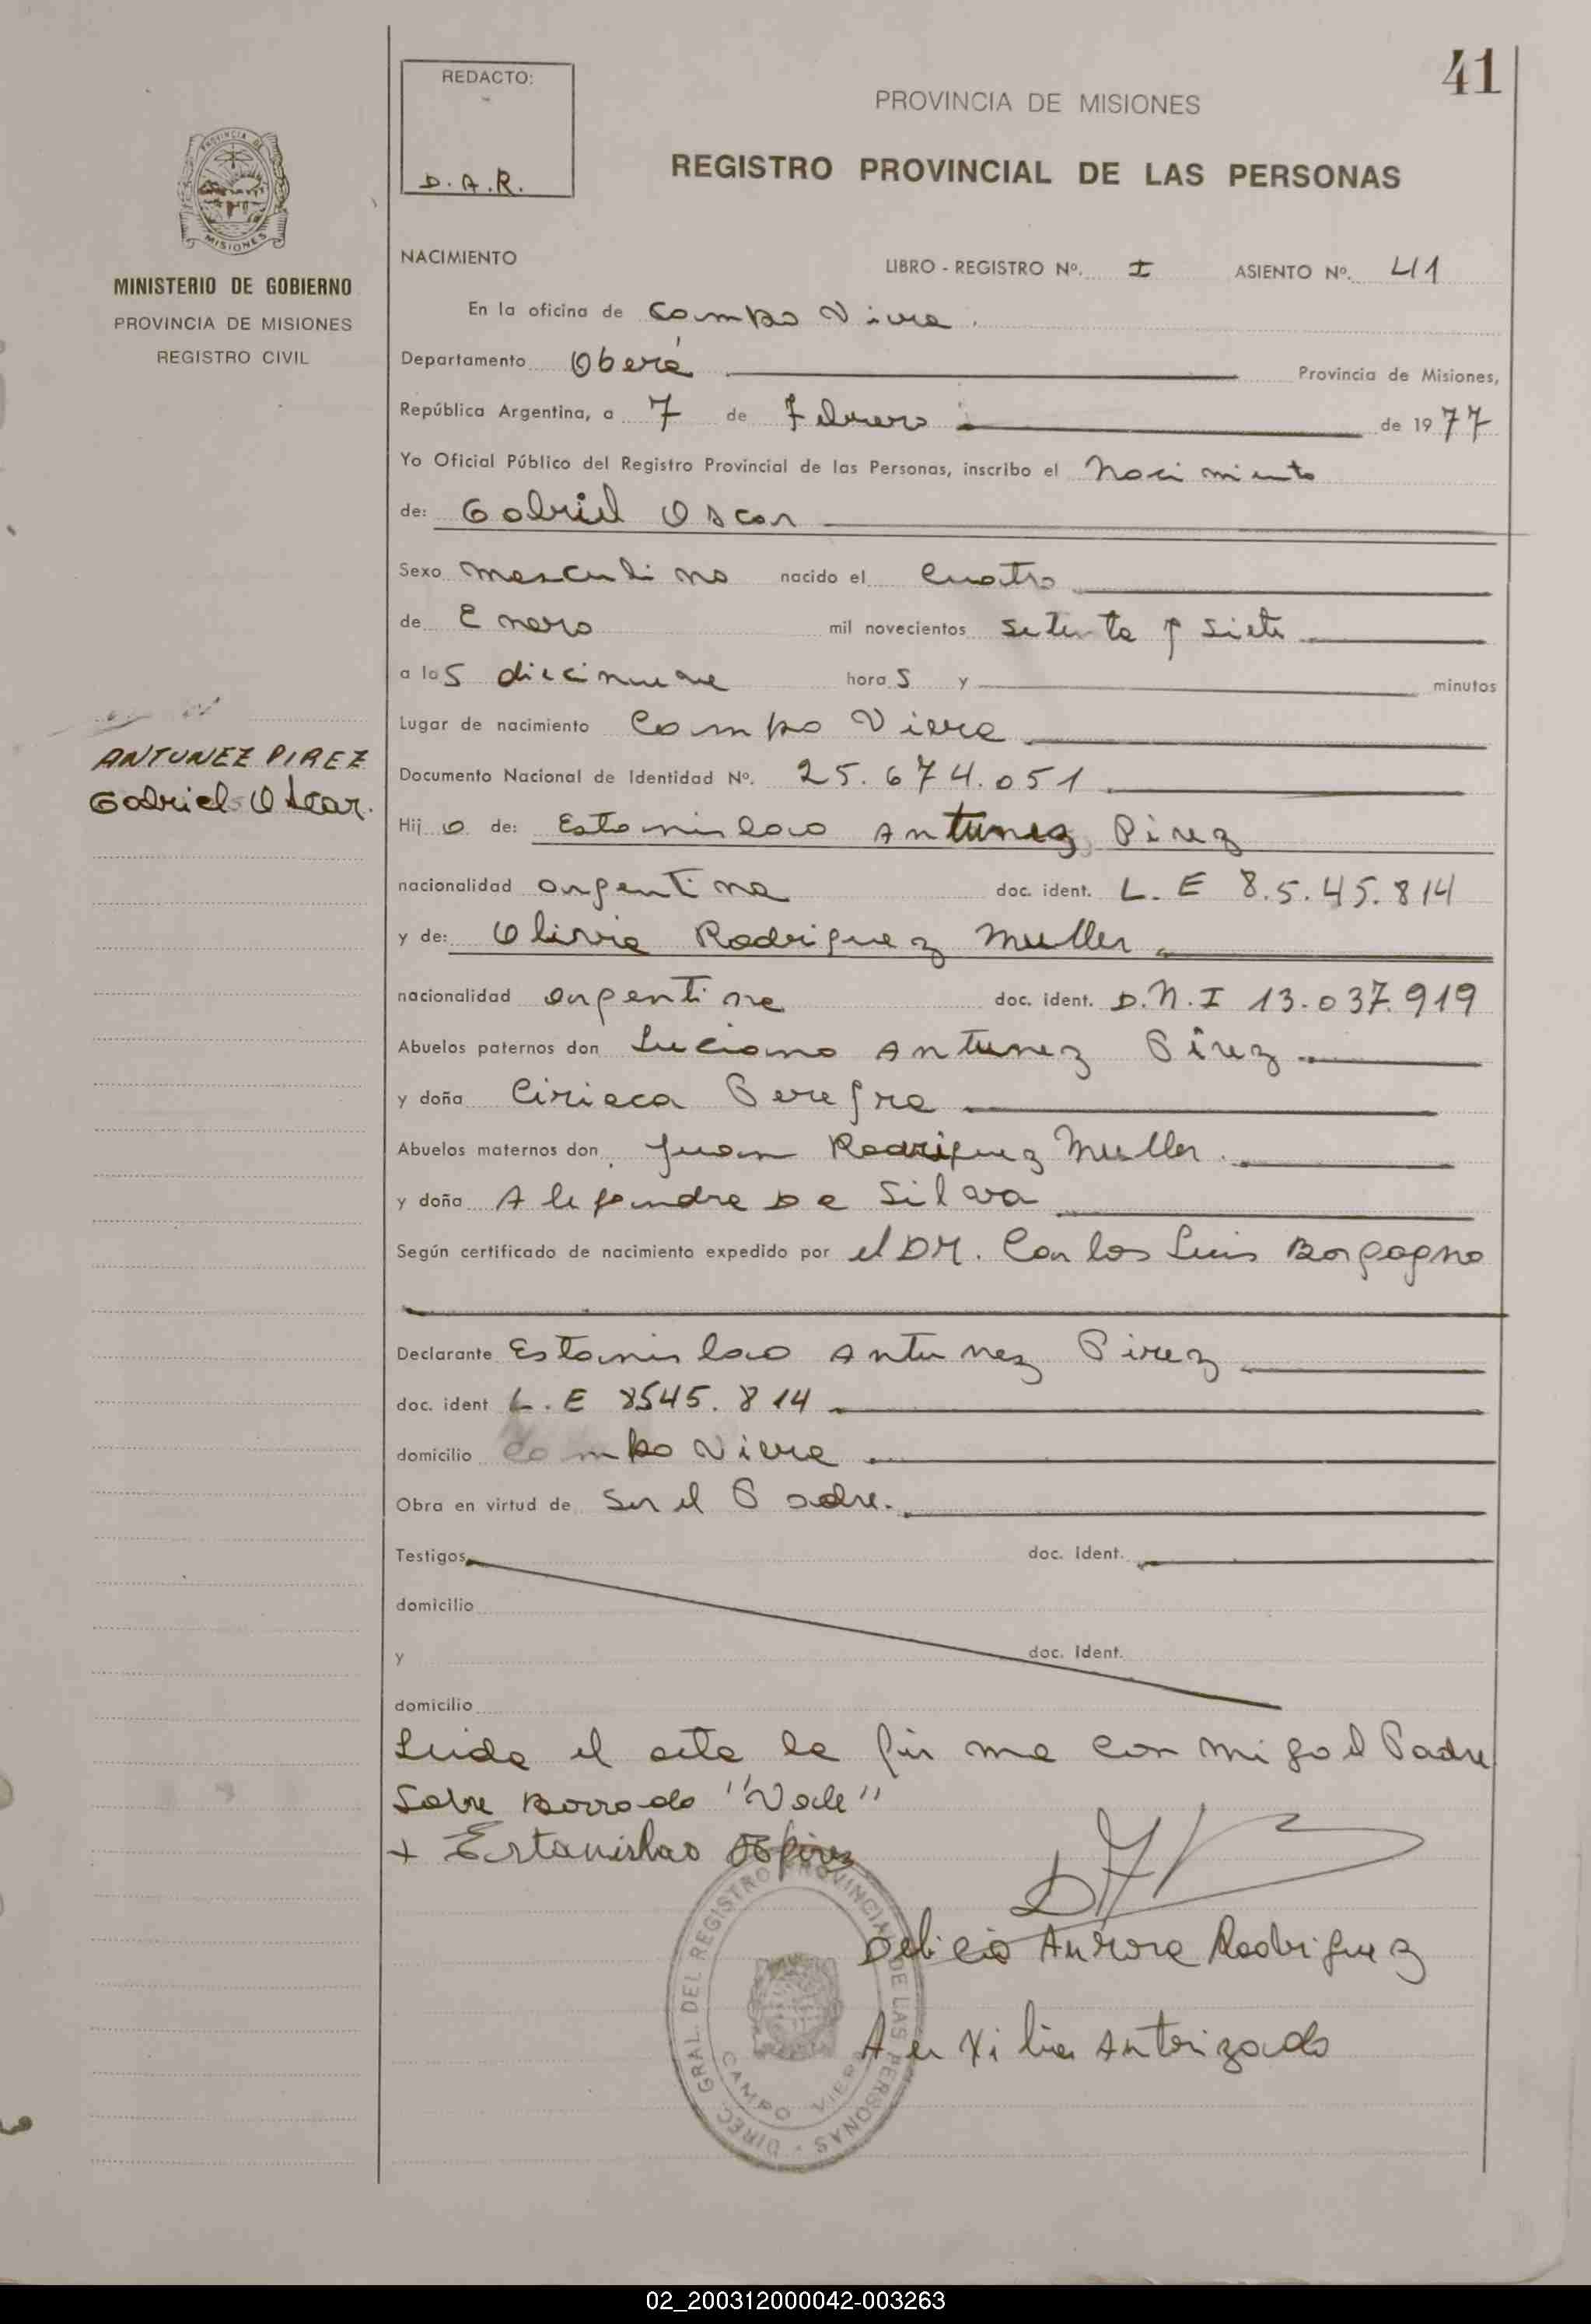 41
REDACTO:
D.A.R.
PROVINCIA DE MISIONES
REGISTRO PROVINCIAL DE LAS PERSONAS
PROVINCIA DE
MISIONES
MINISTERIO DE GOBIERNO
PROVINCIA DE MISIONES
REGISTRO CIVIL
ANTUNEZ PIREZ
Gabriel Oscar.
NACIMIENTO LIBRO - REGISTRO Nº. I ASIENTO Nº. 41
En la oficina de Campo Viera.
Departamento Oberá Provincia de Misiones,
República Argentina, a 7 de Febrero de 1977
Yo Oficial Público del Registro Provincial de las Personas, inscribo el Nacimiento
de: Gabriel Oscar
Sexo masculino nacido el cuatro
de Enero mil novecientos setenta y siete
a las diecinueve horas y minutos
Lugar de nacimiento Campo Viera
Documento Nacional de Identidad Nº. 25.674.051
Hijo de: Estanislao Antunez Pirez
nacionalidad argentina doc. ident. L.E 8.5.45.814
y de: Olivia Rodriguez Muller
nacionalidad argentina doc. ident. D.N.I 13.037.919
Abuelos paternos don Luciano Antunez Pirez
y doña Ciriaca Pereyra
Abuelos maternos don Juan Rodriguez Muller
y doña Alejandra Da Silva
Según certificado de nacimiento expedido por el DR. Carlos Luis Borgogno
Declarante Estanislao Antunez Pirez
doc. ident L.E 8545.814
domicilio Campo Viera
Obra en virtud de Ser el Padre.
Testigos doc. Ident.
domicilio
y doc. Ident.
domicilio
Leida el acta la firma conmigo el Padre
Sobre Borrado "Vale"
+ Estanislao
Delicia Aurora Rodriguez
Auxiliar Autorizado
DIREC. GRAL. DEL REGISTRO PROVINCIAL DE LAS PERSONAS
CAMPO VIERA
02_200312000042-003263